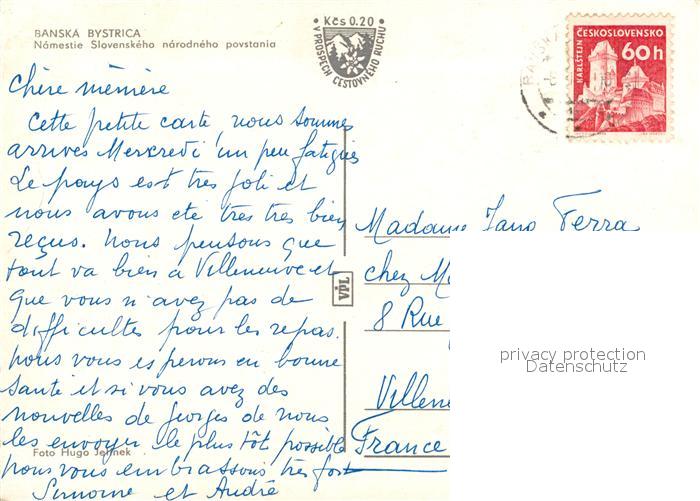 BANSKÁ BYSTRICA
Námestie Slovenského národného povstania
Kčs 0.20
V PROSPECH CESTOVNÉHO RUCHU
ČESKOSLOVENSKO
KARLŠTEJN
60h
Chère mémère
Cette petite carte, nous sommes
arrives Mercredi un peu fatigués
Le pays est très joli et
nous avons eté tres tres bien
reçus. Nous pensons que
tout va bien a Villeneuve et
que vous n'avez pas de
difficultes pour les repas.
nous vous esperons en bonne
santé et si vous avez des
nouvelles de Georges de nous
les envoyer le plus tôt possible
nous vous embrassons très fort
Simone et André
Foto Hugo Jelínek
VDL
Madame Jano Ferra
chez M
8 Rue
Villene
France
privacy protection
Datenschutz